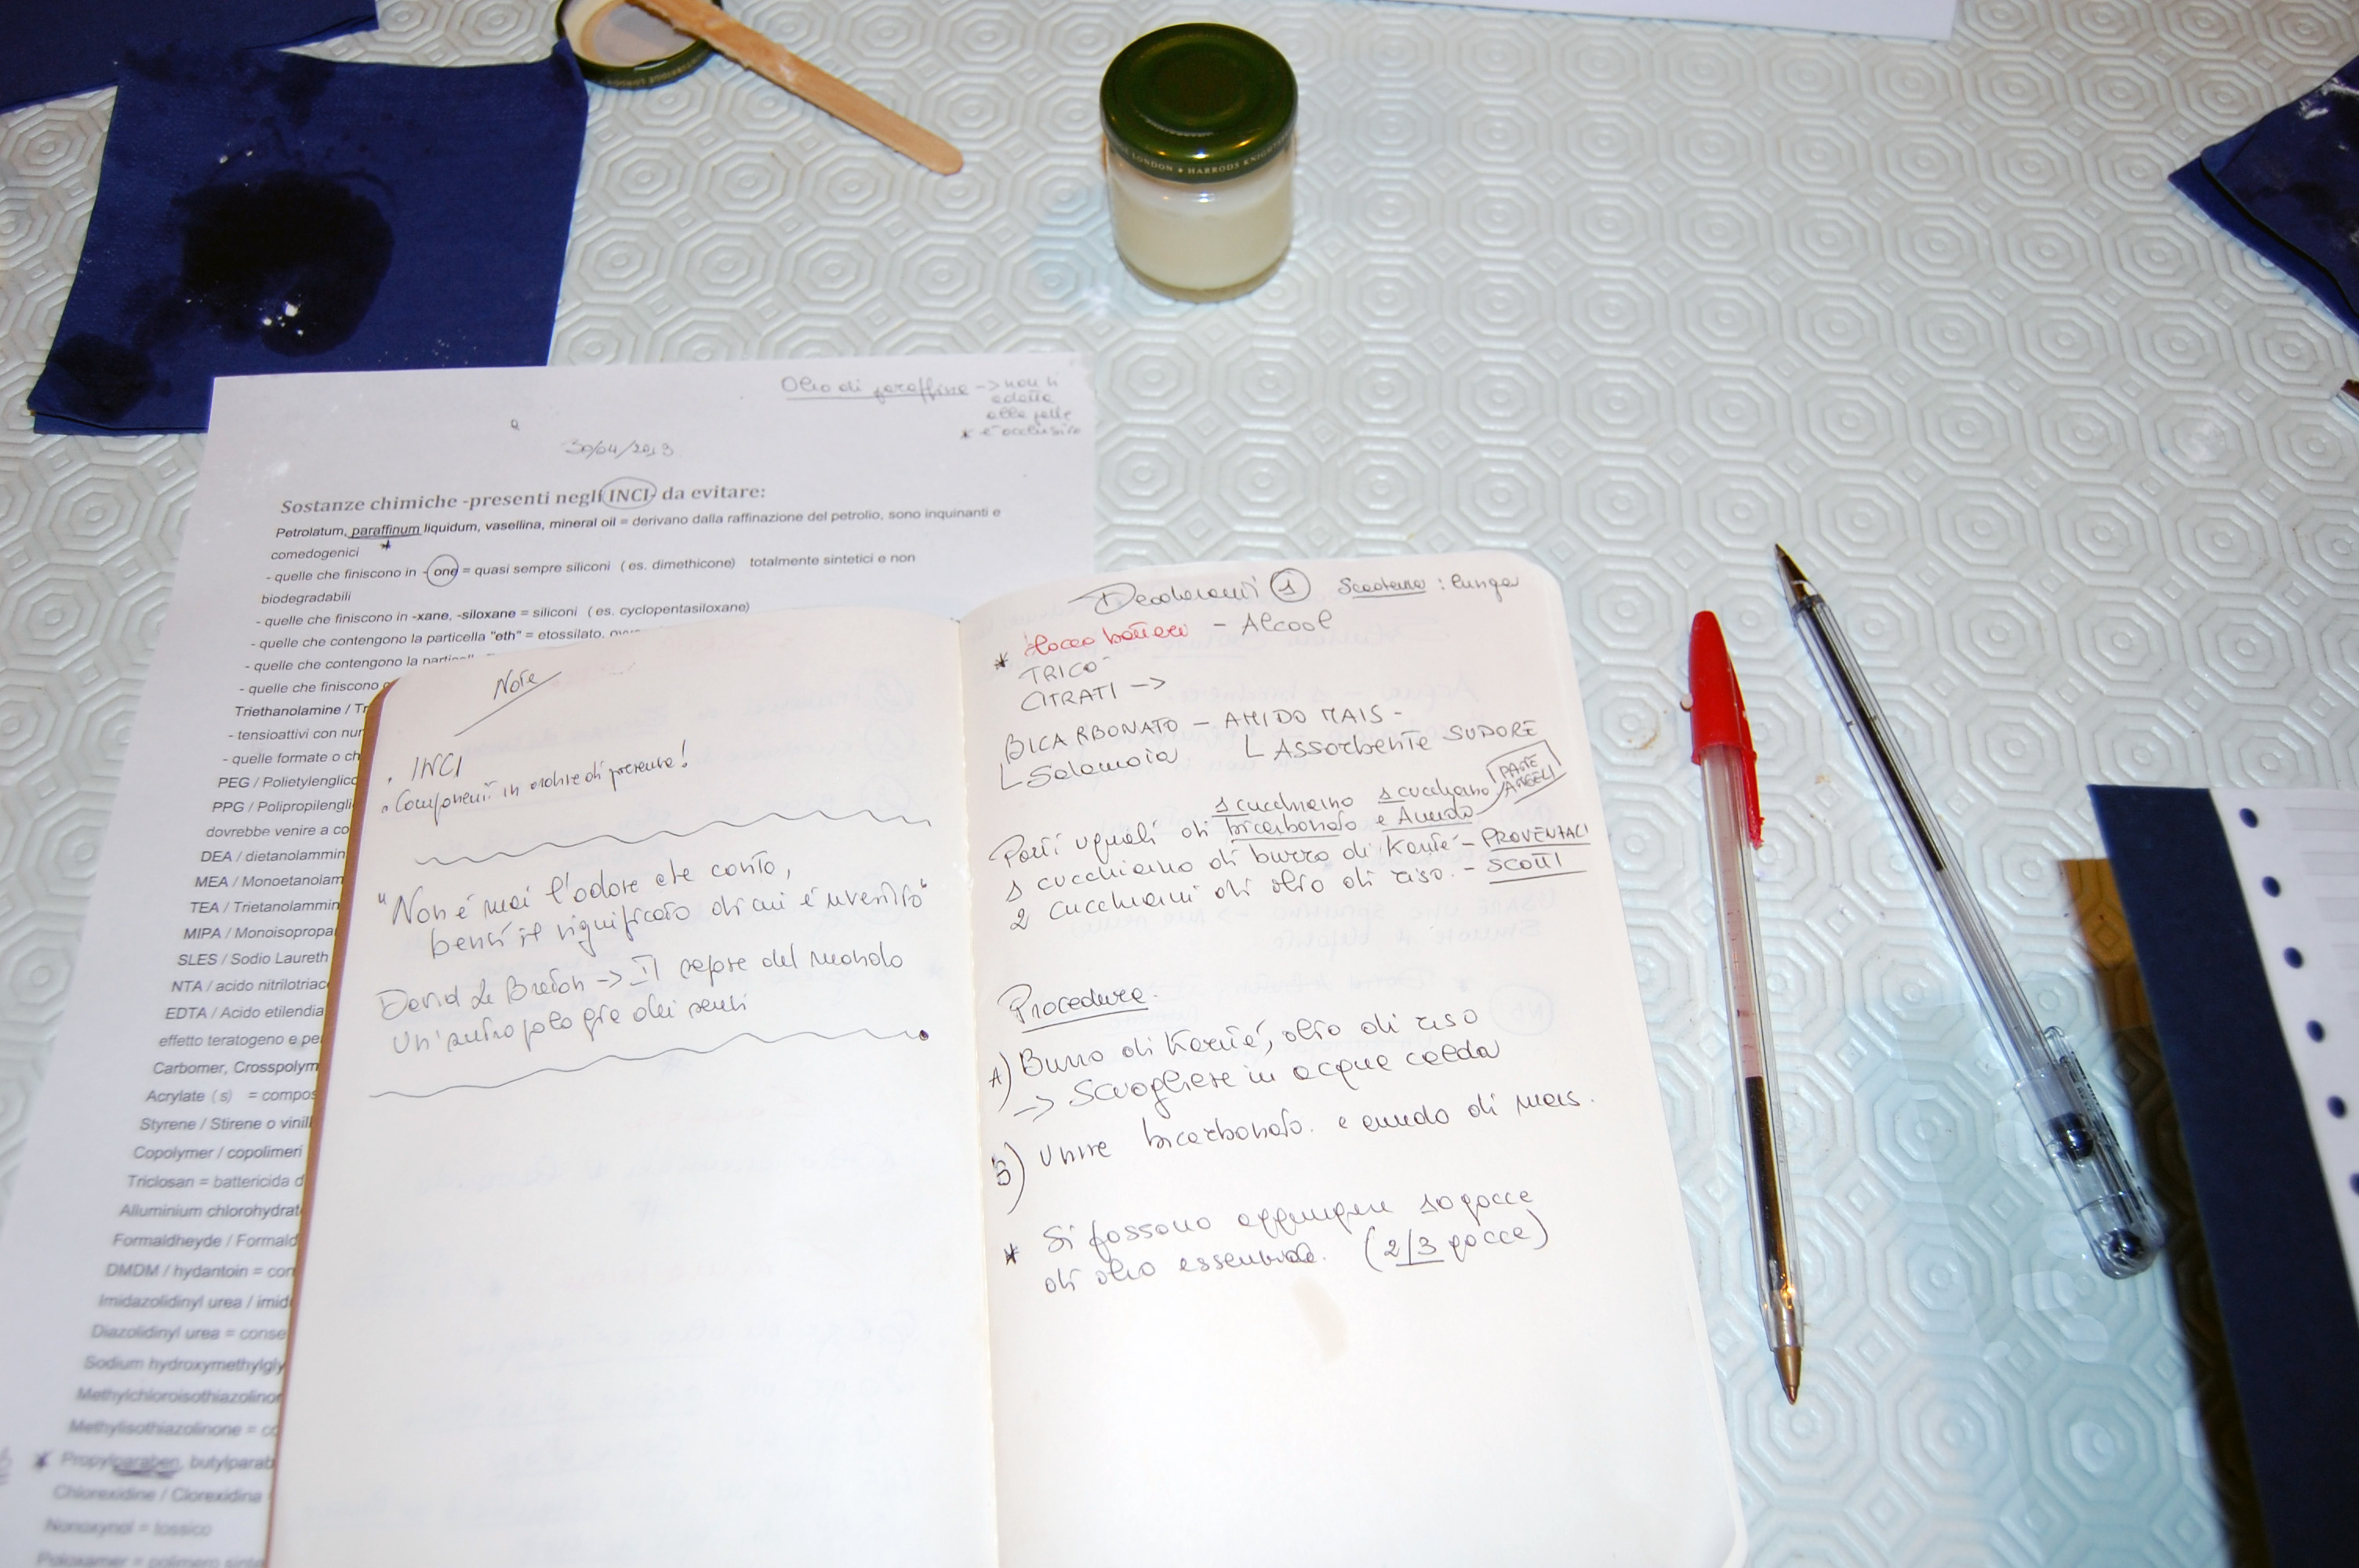 LONDON ★ HARRODS KNIGHTSBRIDGE
Olio di paraffina -> non si
adatta
alla pelle
* è occlusivo
30/04/2013
Sostanze chimiche -presenti negli INCI- da evitare:
Petrolatum, paraffinum liquidum, vasellina, mineral oil = derivano dalla raffinazione del petrolio, sono inquinanti e
comedogenici
- quelle che finiscono in -one = quasi sempre siliconi ( es. dimethicone) totalmente sintetici e non
biodegradabili
- quelle che finiscono in -xane, -siloxane = siliconi ( es. cyclopentasiloxane)
- quelle che contengono la particella "eth" = etossilato,
- quelle che contengono la
- quelle che finiscono
Triethanolamine /
- tensioattivi con
- quelle formate o
PEG /
PPG /
dovrebbe venire a
DEA /
MEA /
TEA /
MIPA /
SLES / Sodio Laureth
NTA / acido
EDTA / Acido
effetto teratogeno e
Carbomer,
Acrylate (s) =
Styrene / Stirene o
Copolymer / copolimeri
Triclosan = battericida
Alluminium
Formaldheyde /
DMDM / hydantoin =
Imidazolidinyl urea /
Diazolidinyl urea =
Sodium
Methylisothiazolinone =
* Propylparaben,
Chlorexidine / Clorexidina
Nonoxynol = tossico
Poloxamer = polimero
Note
. INCI
. Componenti in ordine di presenza!
"Non è mai l'odore che conta,
bensì il significato di cui è investito"
David Le Breton -> Il sapore del mondo
Un'antropologia dei sensi
Deodoranti 1 Scadenza : lunga
* blocca batteri - Alcool
TRICO
CITRATI ->
BICARBONATO - AMIDO MAIS -
L Salamoia L Assorbente SUDORE
1 cucchiaino 1 cucchiaino
Parti uguali di bicarbonato e Amido
1 cucchiaino di burro di Karité - PROVENZALI
2 cucchiaini di olio di riso. - SCOTTI
Procedura.
A) Burro di Karité, olio di riso
-> Sciogliere in acqua calda
B) Unire bicarbonato. e amido di mais.
* Si possono aggiungere 10 gocce
di olio essenziale. (2/3 gocce)